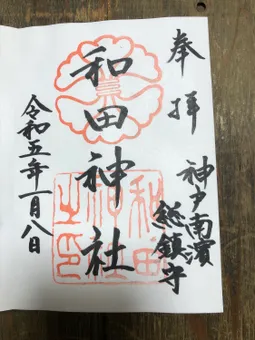 奉拝
神戸南濱
総鎮守
和田神社
和田神社之印
令和五年一月八日